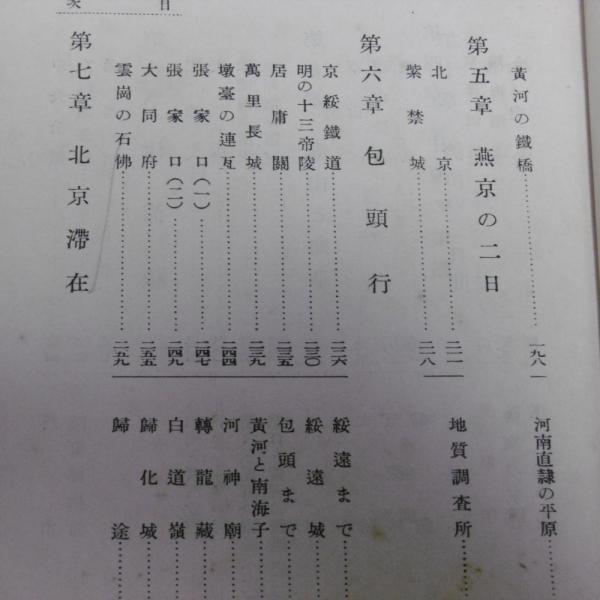 目次
黃河の鐵橋……一九八
河南直隷の平原……
第五章 燕京の二日
北京……二一一
紫禁城……二一八
地質調査所……
第六章 包頭行
京綏鐵道……二二六
明の十三帝陵……二三〇
居庸關……二三五
萬里長城……二三九
墩臺の連亙……二四四
張家口(一)……二四七
張家口(二)……二四九
大同府……二五五
雲崗の石佛……二五九
綏遠まで……
綏遠城……
包頭まで……
黃河と南海子……
河神廟……
轉龍藏……
白道嶺……
歸化城……
歸途……
第七章 北京滯在